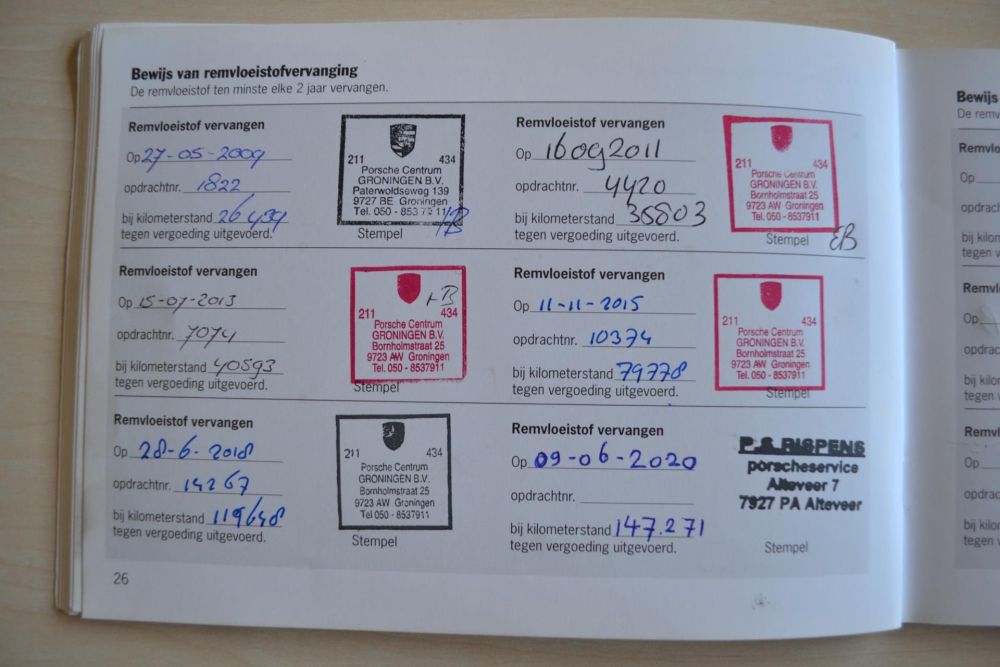 Bewijs van remvloeistofvervanging
De remvloeistof ten minste elke 2 jaar vervangen.
Remvloeistof vervangen
Op 27-05-2009
opdrachtnr. 1822
bij kilometerstand 26439
tegen vergoeding uitgevoerd.
211 434
Porsche Centrum
GRONINGEN B.V.
Paterwoldseweg 139
9727 BE Groningen
Tel. 050 - 853 79 11
HB
Stempel
Remvloeistof vervangen
Op 16092011
opdrachtnr. 4420
bij kilometerstand 35803
tegen vergoeding uitgevoerd.
211 434
Porsche Centrum
GRONINGEN B.V.
Bornholmstraat 25
9723 AW Groningen
Tel. 050 - 8537911
Stempel
EB
Remvloeistof vervangen
Op 15-07-2013
opdrachtnr. 7074
bij kilometerstand 40593
tegen vergoeding uitgevoerd.
HB
211 434
Porsche Centrum
GRONINGEN B.V.
Bornholmstraat 25
9723 AW Groningen
Tel. 050 - 8537911
Stempel
Remvloeistof vervangen
Op 11-11-2015
opdrachtnr. 10374
bij kilometerstand 79778
tegen vergoeding uitgevoerd.
211 434
Porsche Centrum
GRONINGEN B.V.
Bornholmstraat 25
9723 AW Groningen
Tel. 050 - 8537911
Stempel
Remvloeistof vervangen
Op 28-6-2018
opdrachtnr. 14267
bij kilometerstand 119648
tegen vergoeding uitgevoerd.
211 434
Porsche Centrum
GRONINGEN B.V.
Bornholmstraat 25
9723 AW Groningen
Tel. 050 - 8537911
Stempel
Remvloeistof vervangen
Op 09-06-2020
opdrachtnr.
bij kilometerstand 147.271
tegen vergoeding uitgevoerd.
P.S. RISPENS
porscheservice
Alteveer 7
7927 PA Alteveer
Stempel
26
Bewijs
De remv
Remvlo
Op
opdrach
bij kilon
tegen v
Remvl
Op
opdrac
bij kilo
tegen
Remvl
Op
opdrac
bij kilo
tegen v